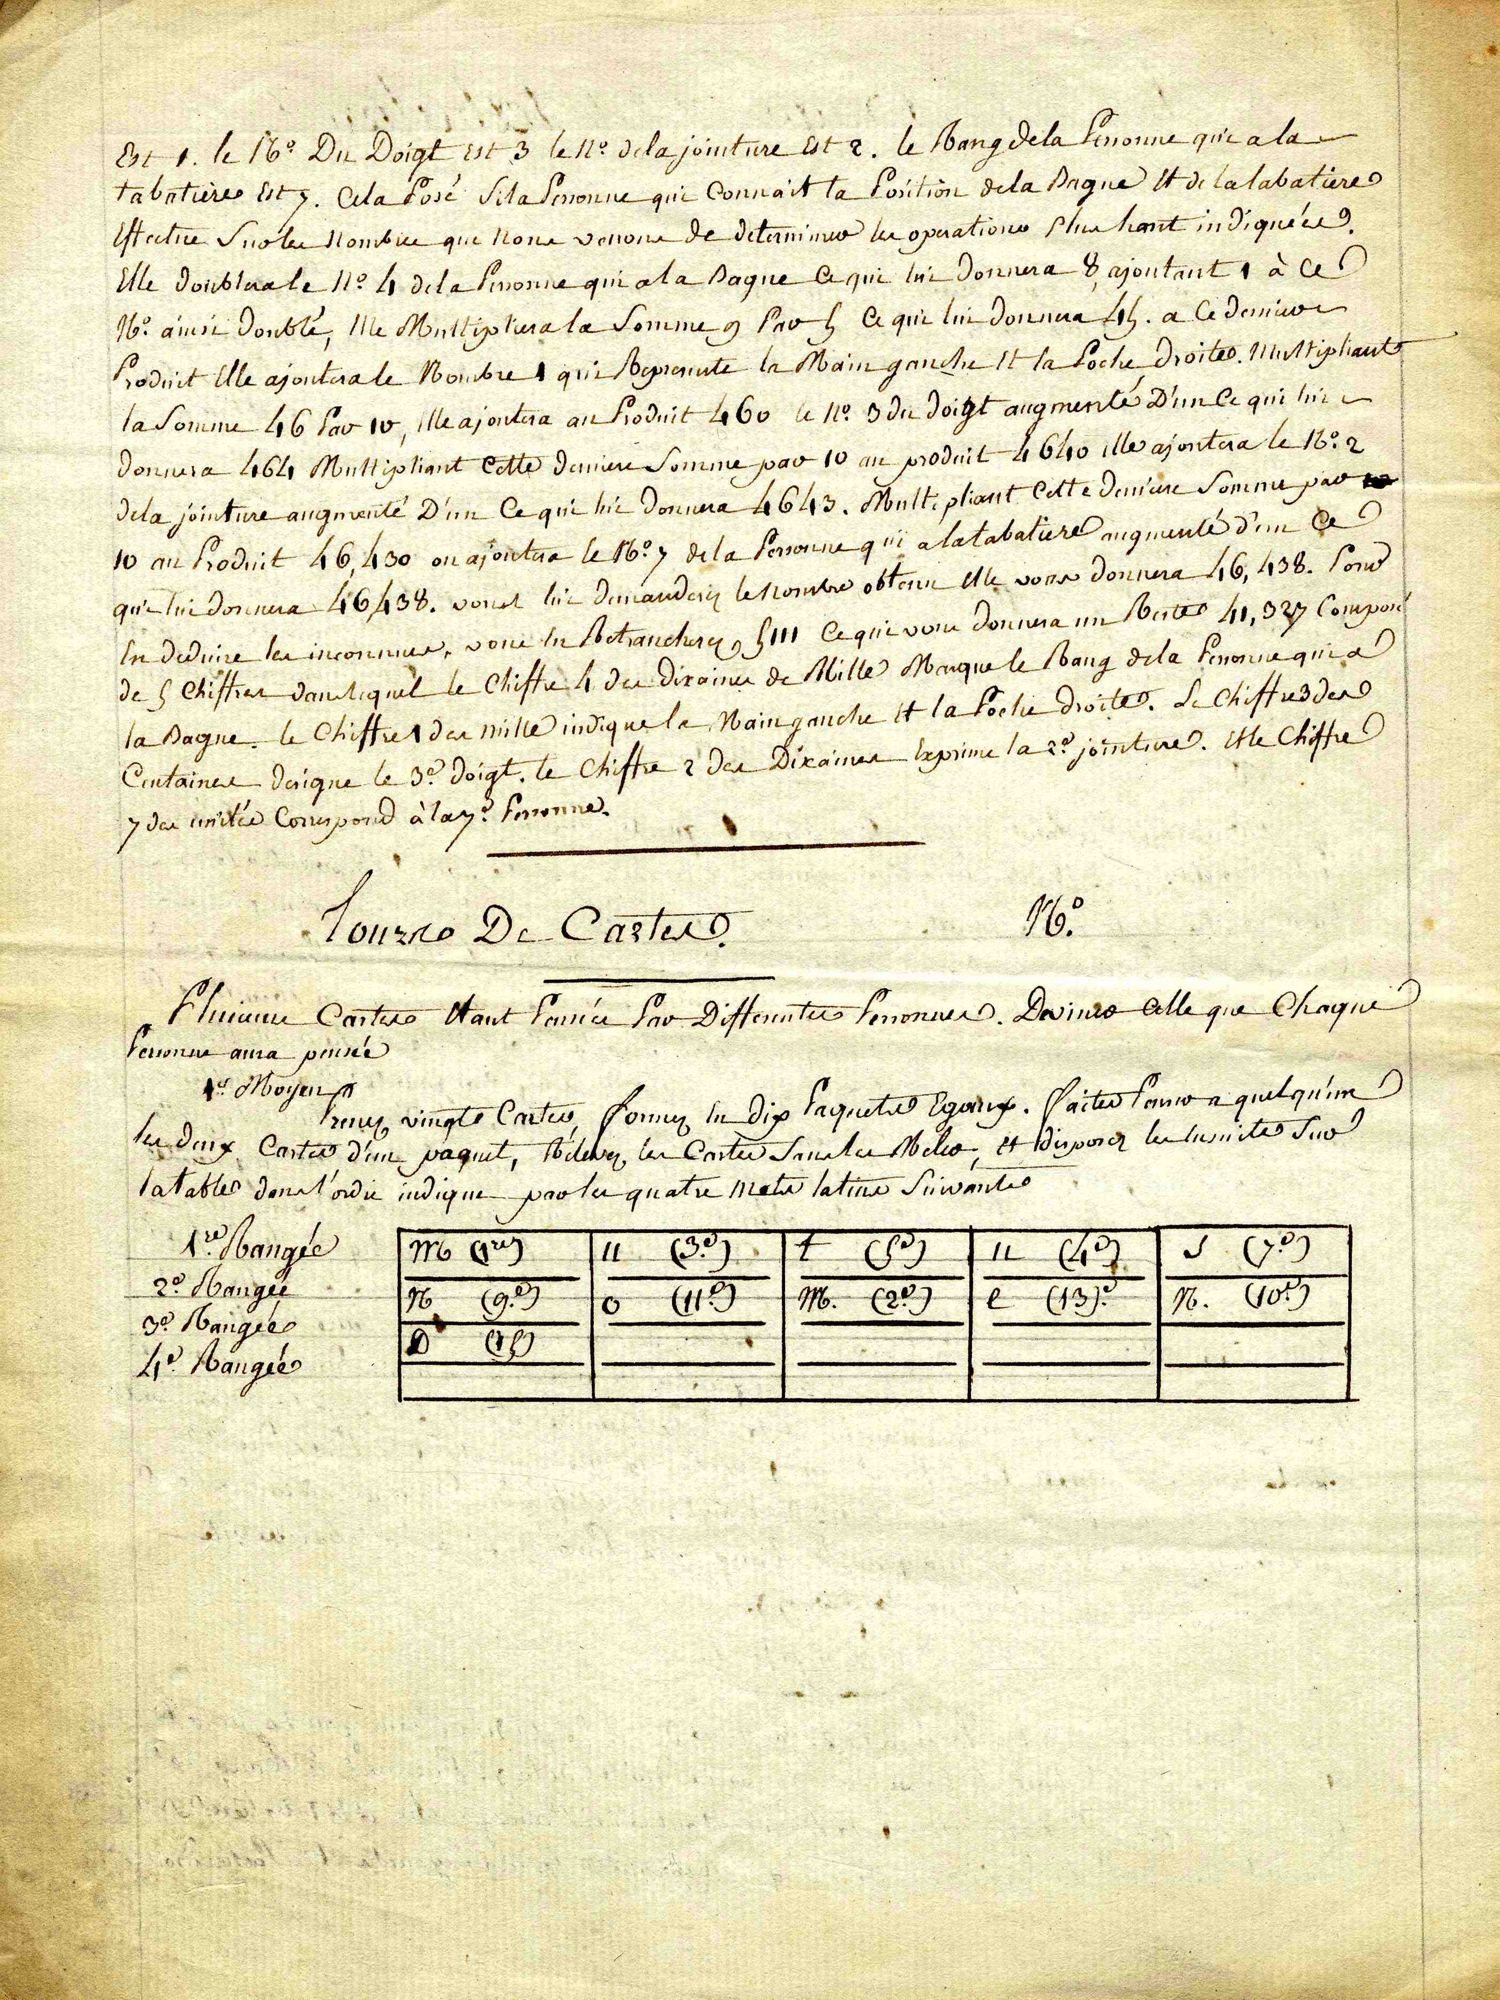 Est 1. le N.o Du Doigt est 3 le n.o de la jointure Est 2. le Rang de la Personne qui a la
tabatiere Est 7. Cela Posé Si la Personne qui Connait la Position de la Bague Et de la tabatiere
Effectue Sur les Nombres que nous venons de determiner les operations Plus haut indiquées.
Elle doublera le N.o 4 de la Personne qui a la Bague Ce qui lui donnera 8, ajoutant 1 à Ce
N.o ainsi doublé, Elle Multipliera la Somme 9 Par 5 Ce qui lui donnera 45. a Ce dernier
Produit Elle ajoutera le Nombre 1 qui Represente la Main gauche Et la Poche droite. Multipliant
la Somme 46 Par 10, Elle ajoutera au Produit 460 le N.o 3 du doigt augmenté D'un Ce qui lui
donnera 464 Multipliant Cette derniere Somme par 10 au produit 4640 Elle ajoutera le N.o 2
de la jointure augmenté D'un Ce qui lui donnera 4643. Multipliant Cette derniere Somme par
10 au Produit 46,430 on ajoutera le N.o 7 de la Personne qui a la tabatiere augmenté d'un Ce
qui lui donnera 46,438. vous lui demanderez le nombre obtenu Elle vous donnera 46,438. Pour
En deduire les inconnues, vous En Retrancherez 5111 Ce qui vous donnera un Reste 41,327 Composé
de 5 Chiffres dans lequel le Chiffre 4 des dixaines de Mille Marque le Rang de la Personne qui a
la Bague. le Chiffre 1 des mille indique la Main gauche Et la Poche droite. Le Chiffre 3 des
Centaines designe le 3.e doigt. le Chiffre 2 des Dixaines Exprime la 2.e jointure. Et le Chiffre
7 des unités Correspond à la 7.e Personne.
Tours De Cartes. N.o
Plusieurs Cartes Etant Pensées Par Differentes Personnes. Deviner Celle que Chaque
Personne aura pensée
1.er Moyen
Prenez vingt Cartes, formez En dix Paquets Egaux. faites Penser a quelqu'un
les deux Cartes d'un paquet, Relevez les Cartes Sans les Mêler, et disposez les Ensuite Sur
la table dans l'ordre indiqué par les quatre mots latins Suivants
1.re Rangée M (1re) u (3.e) t (5e) u (4e) S (7.e)
2.e Rangée N (9.e) o (11e) M. (2.e) e (13).e N. (10e)
3.e Rangée D (15)
4.e Rangée